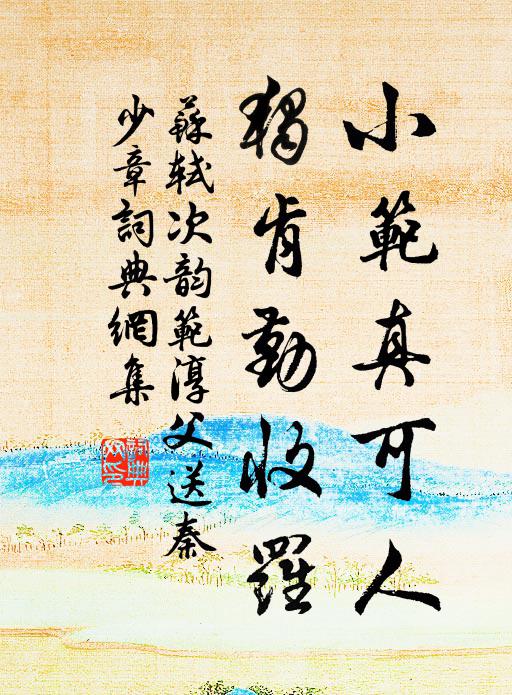 小範真可人
獨肯勤收羅
蘇軾次韵範淳父送秦
少章詞典網集